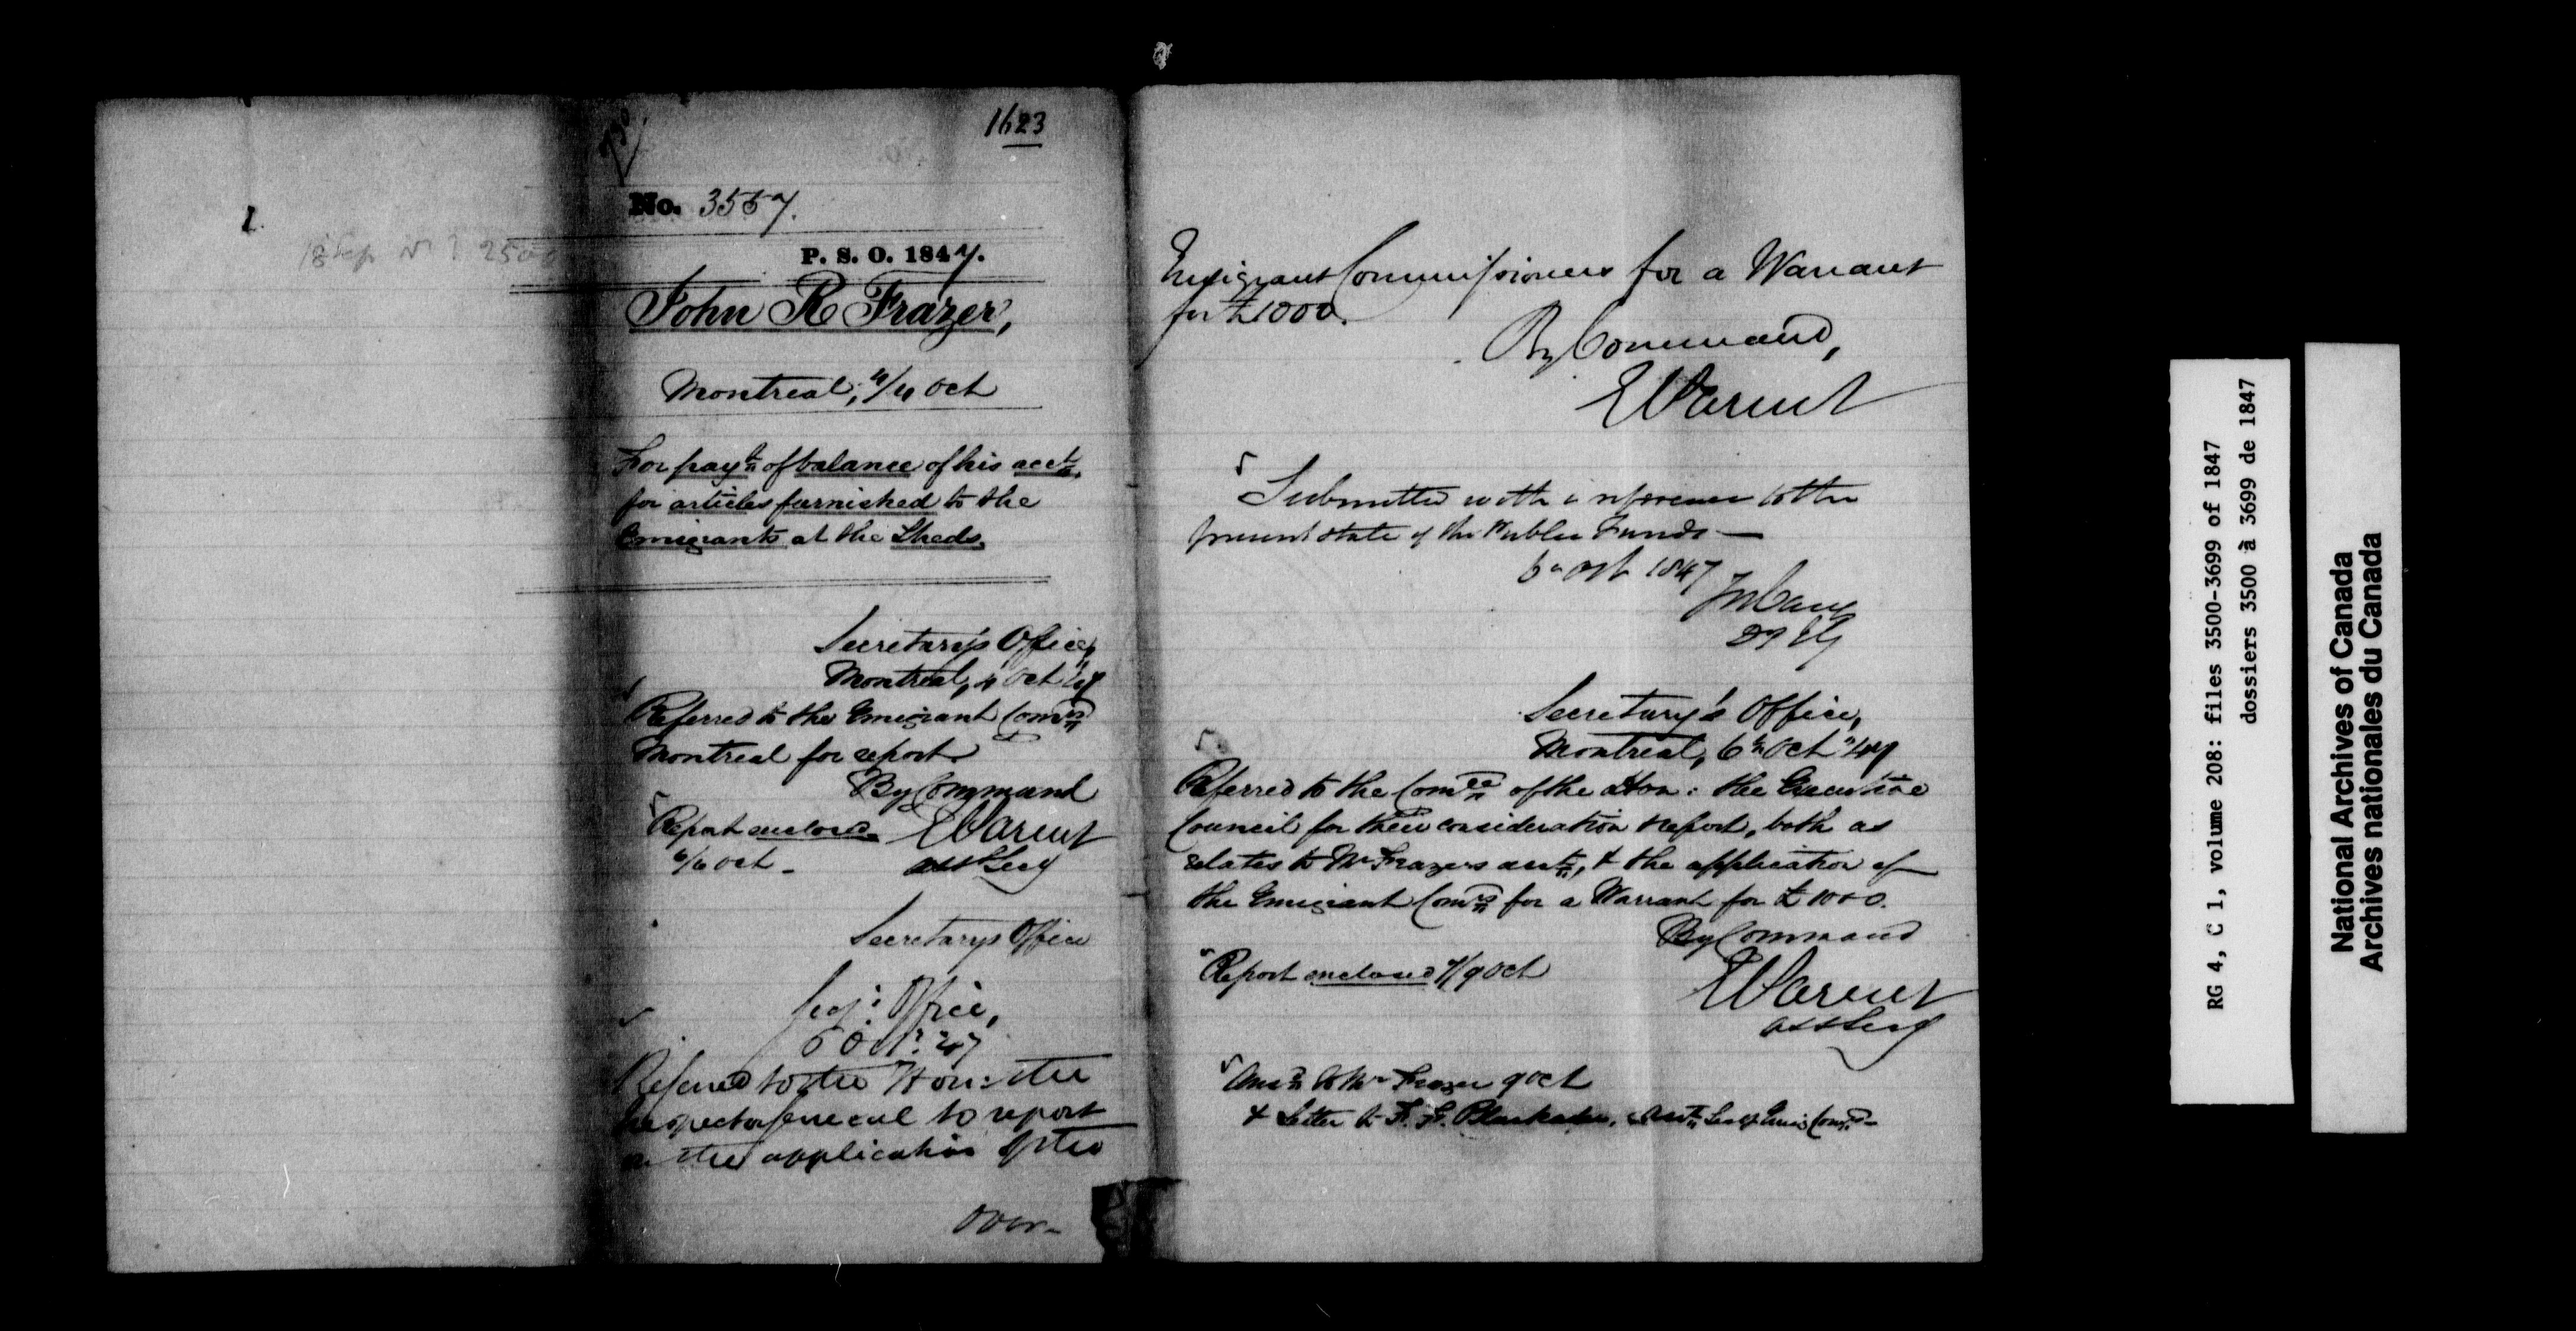 1623
No. 3557.
P. S. O. 1847.
John R Frazer,
Montreal, 4/4 Oct
For paymt of balance of his acct.
for articles furnished to the
Emigrants at the Sheds.
Secretary's Office,
Montreal, 4 Oct 47
Referred to the Emigrant Comrs
Montreal for report
By Command
Report enclosed E Parent
6/6 Oct - Asst Secy
Secretarys Office
Secy: Office,
6 Oct: 47
Referred to the Hon: the
Inspector General to report
on the application of the
Over-
Emigrant Commissioners for a Warrant
for £1000.
By Command,
E Parent
Submitted with a reference to the
present state of the Public Funds —
6 Oct 1847
Jos Cary
DIG
Secretary's Office,
Montreal, 6th Oct "47
Referred to the Comee of the Hon: the Executive
Council for their consideration & report, both as
relates to Mr Frazers acct, & the application of
the Emigrant Comrs for a Warrant for £1000.
By Command
Report enclosed 9/9 Oct
E Parent
Asst Secy
Ansd to Mr Frazer 9 Oct
& Letter to F. F.
RG 4, C 1, volume 208: files 3500-3699 of 1847
dossiers 3500 à 3699 de 1847
National Archives of Canada
Archives nationales du Canada